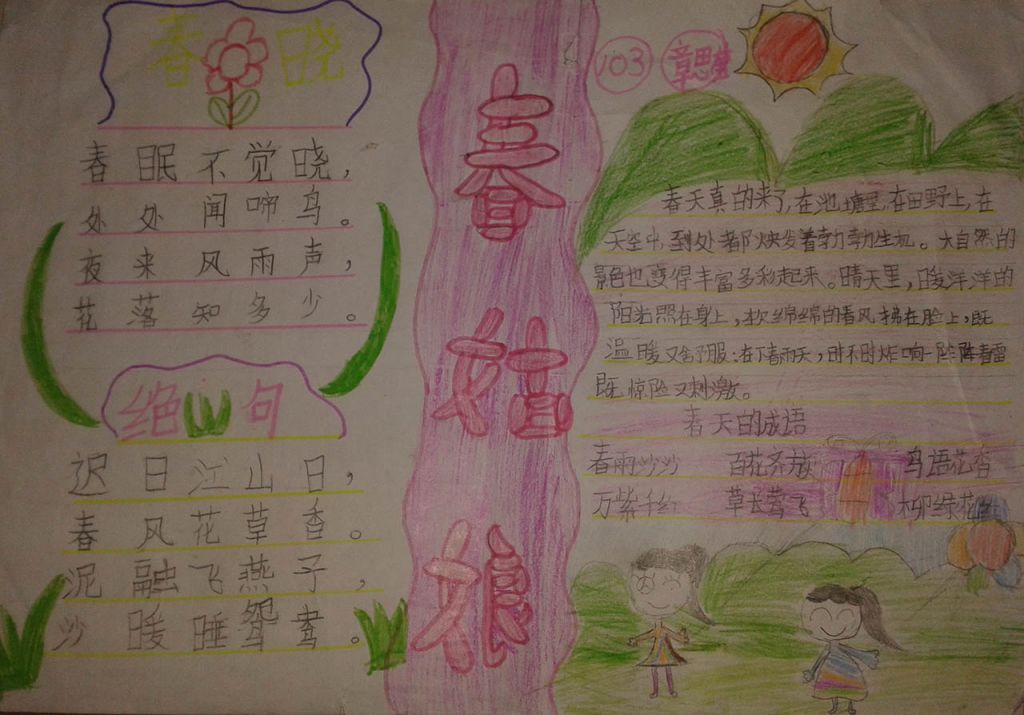 春晓
春眠不觉晓，
处处闻啼鸟。
夜来风雨声，
花落知多少。
绝句
迟日江山日，
春风花草香。
泥融飞燕子，
沙暖睡鸳鸯。
春姑娘
103 章思梦
春天真的来了，在池塘里，在田野上，在
天空中，到处都焕发着勃勃生机。大自然的
景色也变得丰富多彩起来。晴天里，暖洋洋的
阳光照在身上，软绵绵的春风拂在脸上，既
温暖又舒服；在下春雨天，时不时炸响一阵阵春雷
既惊险又刺激。
春天的成语
春雨沙沙 百花齐放 鸟语花香
万紫千红 草长莺飞 柳绿花红